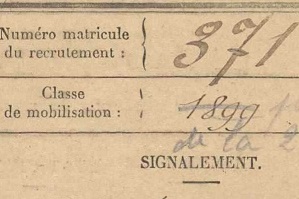 Numéro matricule
du recrutement : 371
Classe
de mobilisation : 1899
de la 2
SIGNALEMENT.